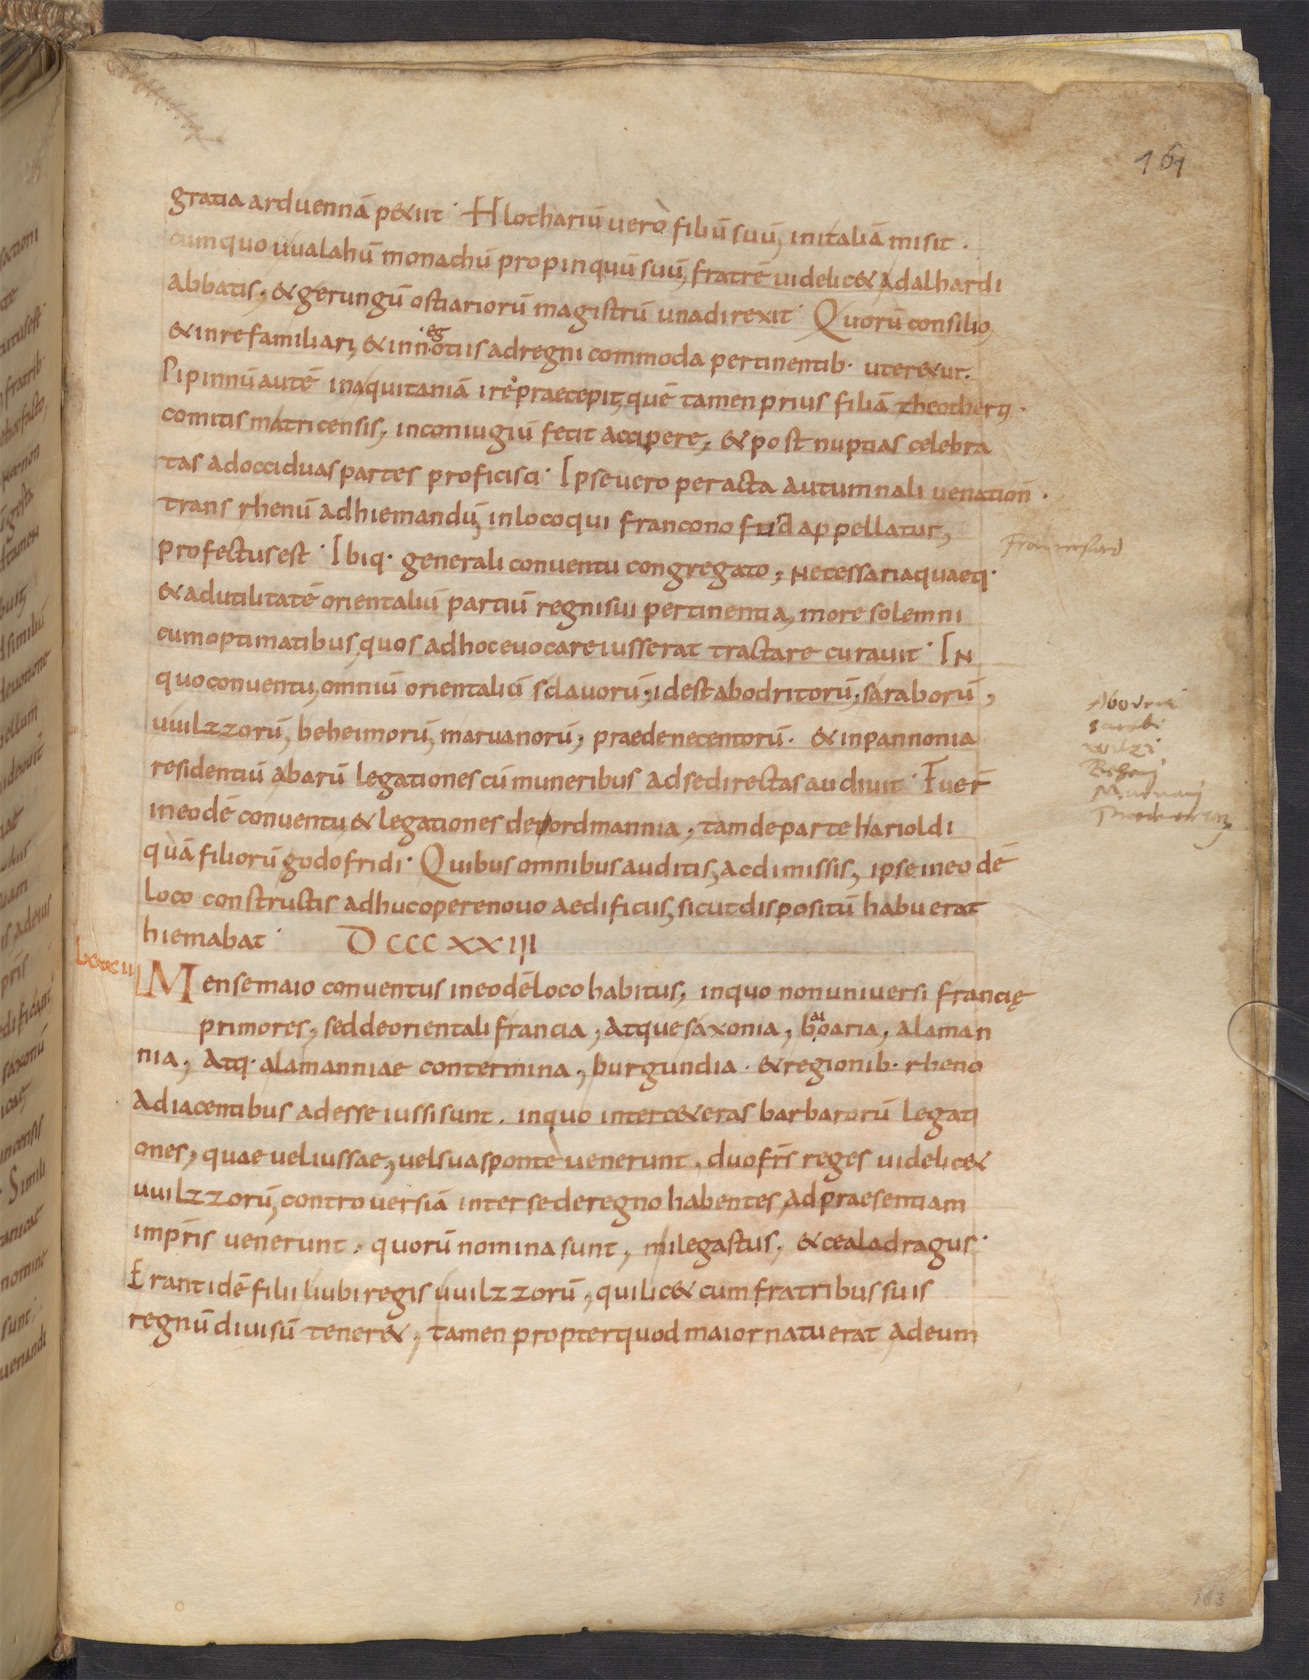 161
gratia arduennā pexiit· Hlothariū vero filiū suū, initaliā misit·
cumquo uualahū monachū propinquū suū, fratrē uidelicet Adalhardi
Abbatis, & gerungū ostiariorū magistrū unadirexit· Quorū consilio,
& inrefamiliari, & innegotiis adregni commoda pertinentib· uteretur.
Pipinnū autē inaquitaniā ire praecepit, quē tamen prius filiā theotherti·
comitis matricensis, inconiugiū fecit accipere, & post nuptias celebra
tas adocciduas partes proficisci· Ipse uero peracta autumnali uenation·
trans rhenū adhiemandū, inloco qui franconofurd appellatur,
profectus est· Ibiq· generali conuentu congregato, necessaria quaeq·
& adutilitatē orientaliū partiū regni sui pertinentia, more solemni
cum optimatibus, quos adhoc euocare iusserat tractare curauit· In
quo conuentu, omniū orientaliū sclauorū, idest abodritorū, saraborū,
uuilzzorū, beheimorū, maruanorū, praedenecentorū· & inpannonia
residentiū abarū legationes cū muneribus adse directas audiuit· Fuer̄
ineodē conuentu & legationes denordmannia, tam departe harioldi
quā filiorū godofridi· Quibus omnibus auditis, ac dimissis, ipse ineodē
loco constructis adhuc opere nouo aedificiis, sicut dispositū habuerat
hiemabat· DCCCXXIII
lxxxcii
Mense maio conuentus ineodē loco habitus, inquo non uniuersi francię
primores, sed deorientali francia, Atque saxonia, baioaria, alaman
nia, Atq· alamanniae contermina, burgundia· & regionib· rheno
Adiacentibus adesse iussi sunt. inquo inter ceteras barbarorū legati
ones, quae uel iussae, uel sua sponte uenerunt, duo fr̄s reges uidelicet
uuilzzorū, controuersiā inter se deregno habentes, Ad praesentiam
impr̄is uenerunt, quorū nomina sunt, milegastus, & cealadragus·
Erant idē filii liubi regis uuilzzorū, qui licet cum fratribus suis
regnū diuisū teneret, tamen propter quod maior natu erat Ad eum
Franconofurd
Abodriti
Sarabi
Wilzi
Behemi
Maruani
163